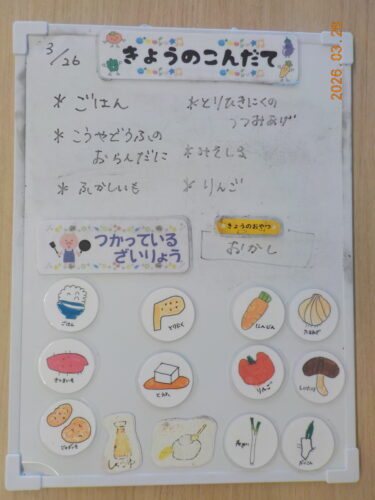 2026.03.26
きょうのこんだて
3/26
* ごはん
* こうやどうふの
おらんだに
* ふかしいも
* とりひきにくの
つつみあげ
* みそしる
* りんご
つかっている
ざいりょう
きょうのおやつ
おかし
ごはん
とりにく
にんじん
たまねぎ
さつまいも
とうふ
りんご
しいたけ
じゃがいも
ねぎ
だいこん